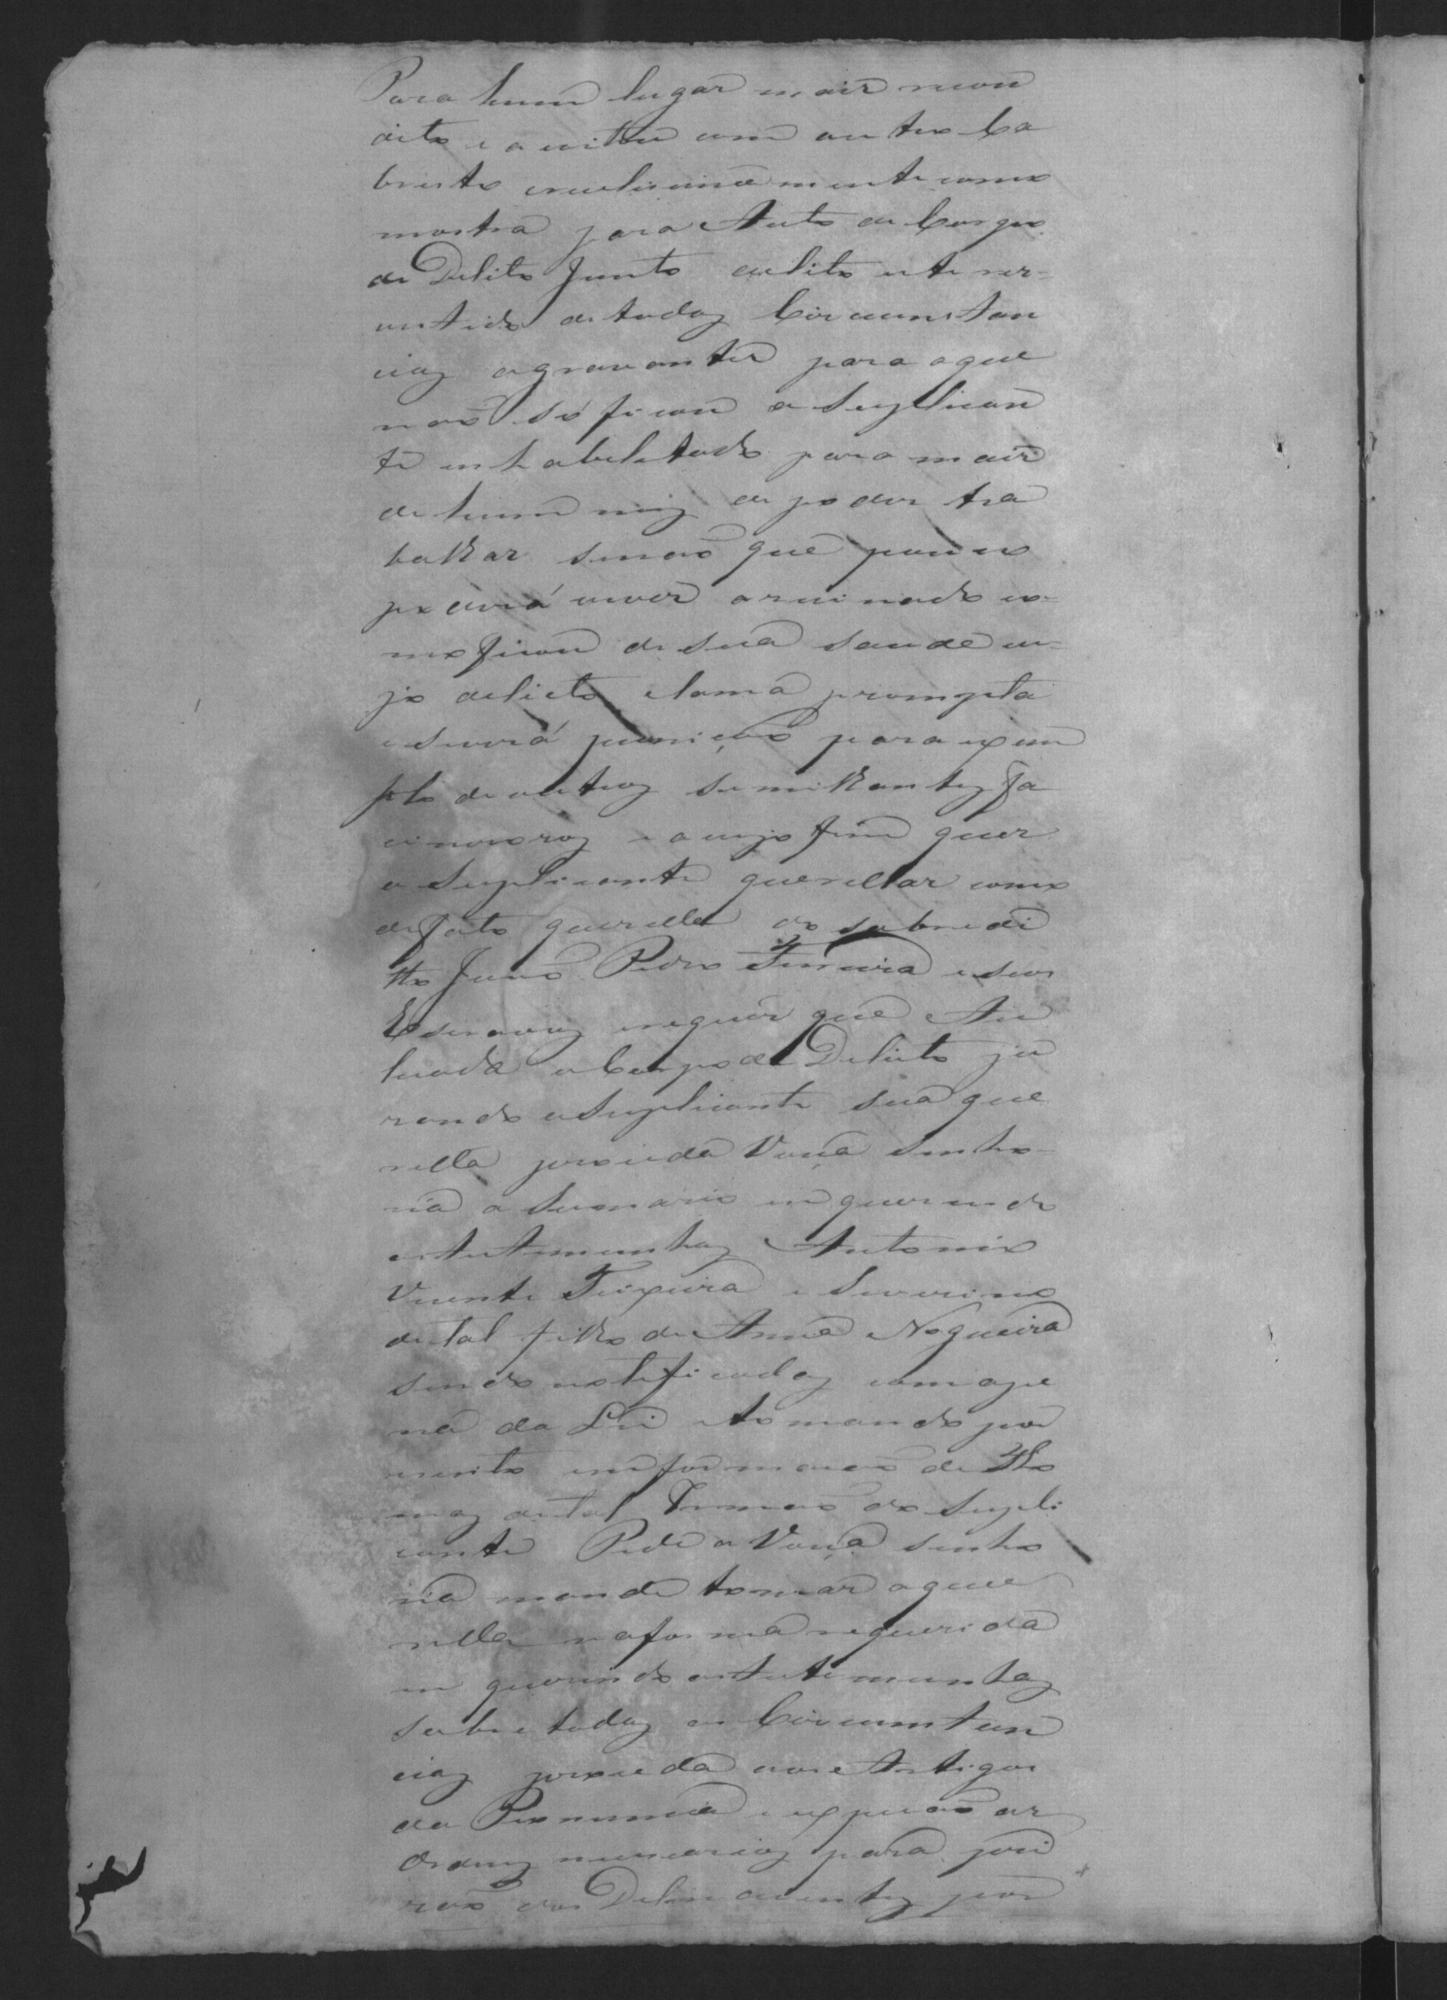 Para hum lugar mais recon
dito e a
bresto cruelissimamente como
mostra para Auto de Corpo
de Delito Junto delito este rer=
vestido de todaz Circunstan
ciaz agravantes para o que
não só ficou o Suplican
te inhabelitado para mais
de hum mez de poder tra
balhar senão que pouco
poderá viver arruinado co=
mo ficou de sua saude cu=
jo delicto clama prompta
e severá punição para exem
plo de outroz semilhantez fa
cinorozoz e a cujo fim quer
o Suplicante querellar como
de facto querella do sobredi
tto João Pedro Ferreira e seos
Escravoz e requer que Au
tuada o Corpo de Delicto ju
rando o Suplicante sua que
rella proceda Vossa Senho-
ria a Sumario inquerindo
as testemunhaz Antonio
Vicente Teixeira e Severino
de tal filho de Anna Nogueira
sendo notificadaz com a pe
na da Lei e tomando por
mento informacão de Tho
maz de tal Irmão do Supli
cante Pede a Vossa Senho
ria mande tomar a que
rella na forma requerida
inquerindo as testemunhaz
sobre todaz as Circumstan
ciaz proceda aos Artigos
da Pronuncia e expeção as
Ordenz necessariaz para pri
zão dos Delinquentez por